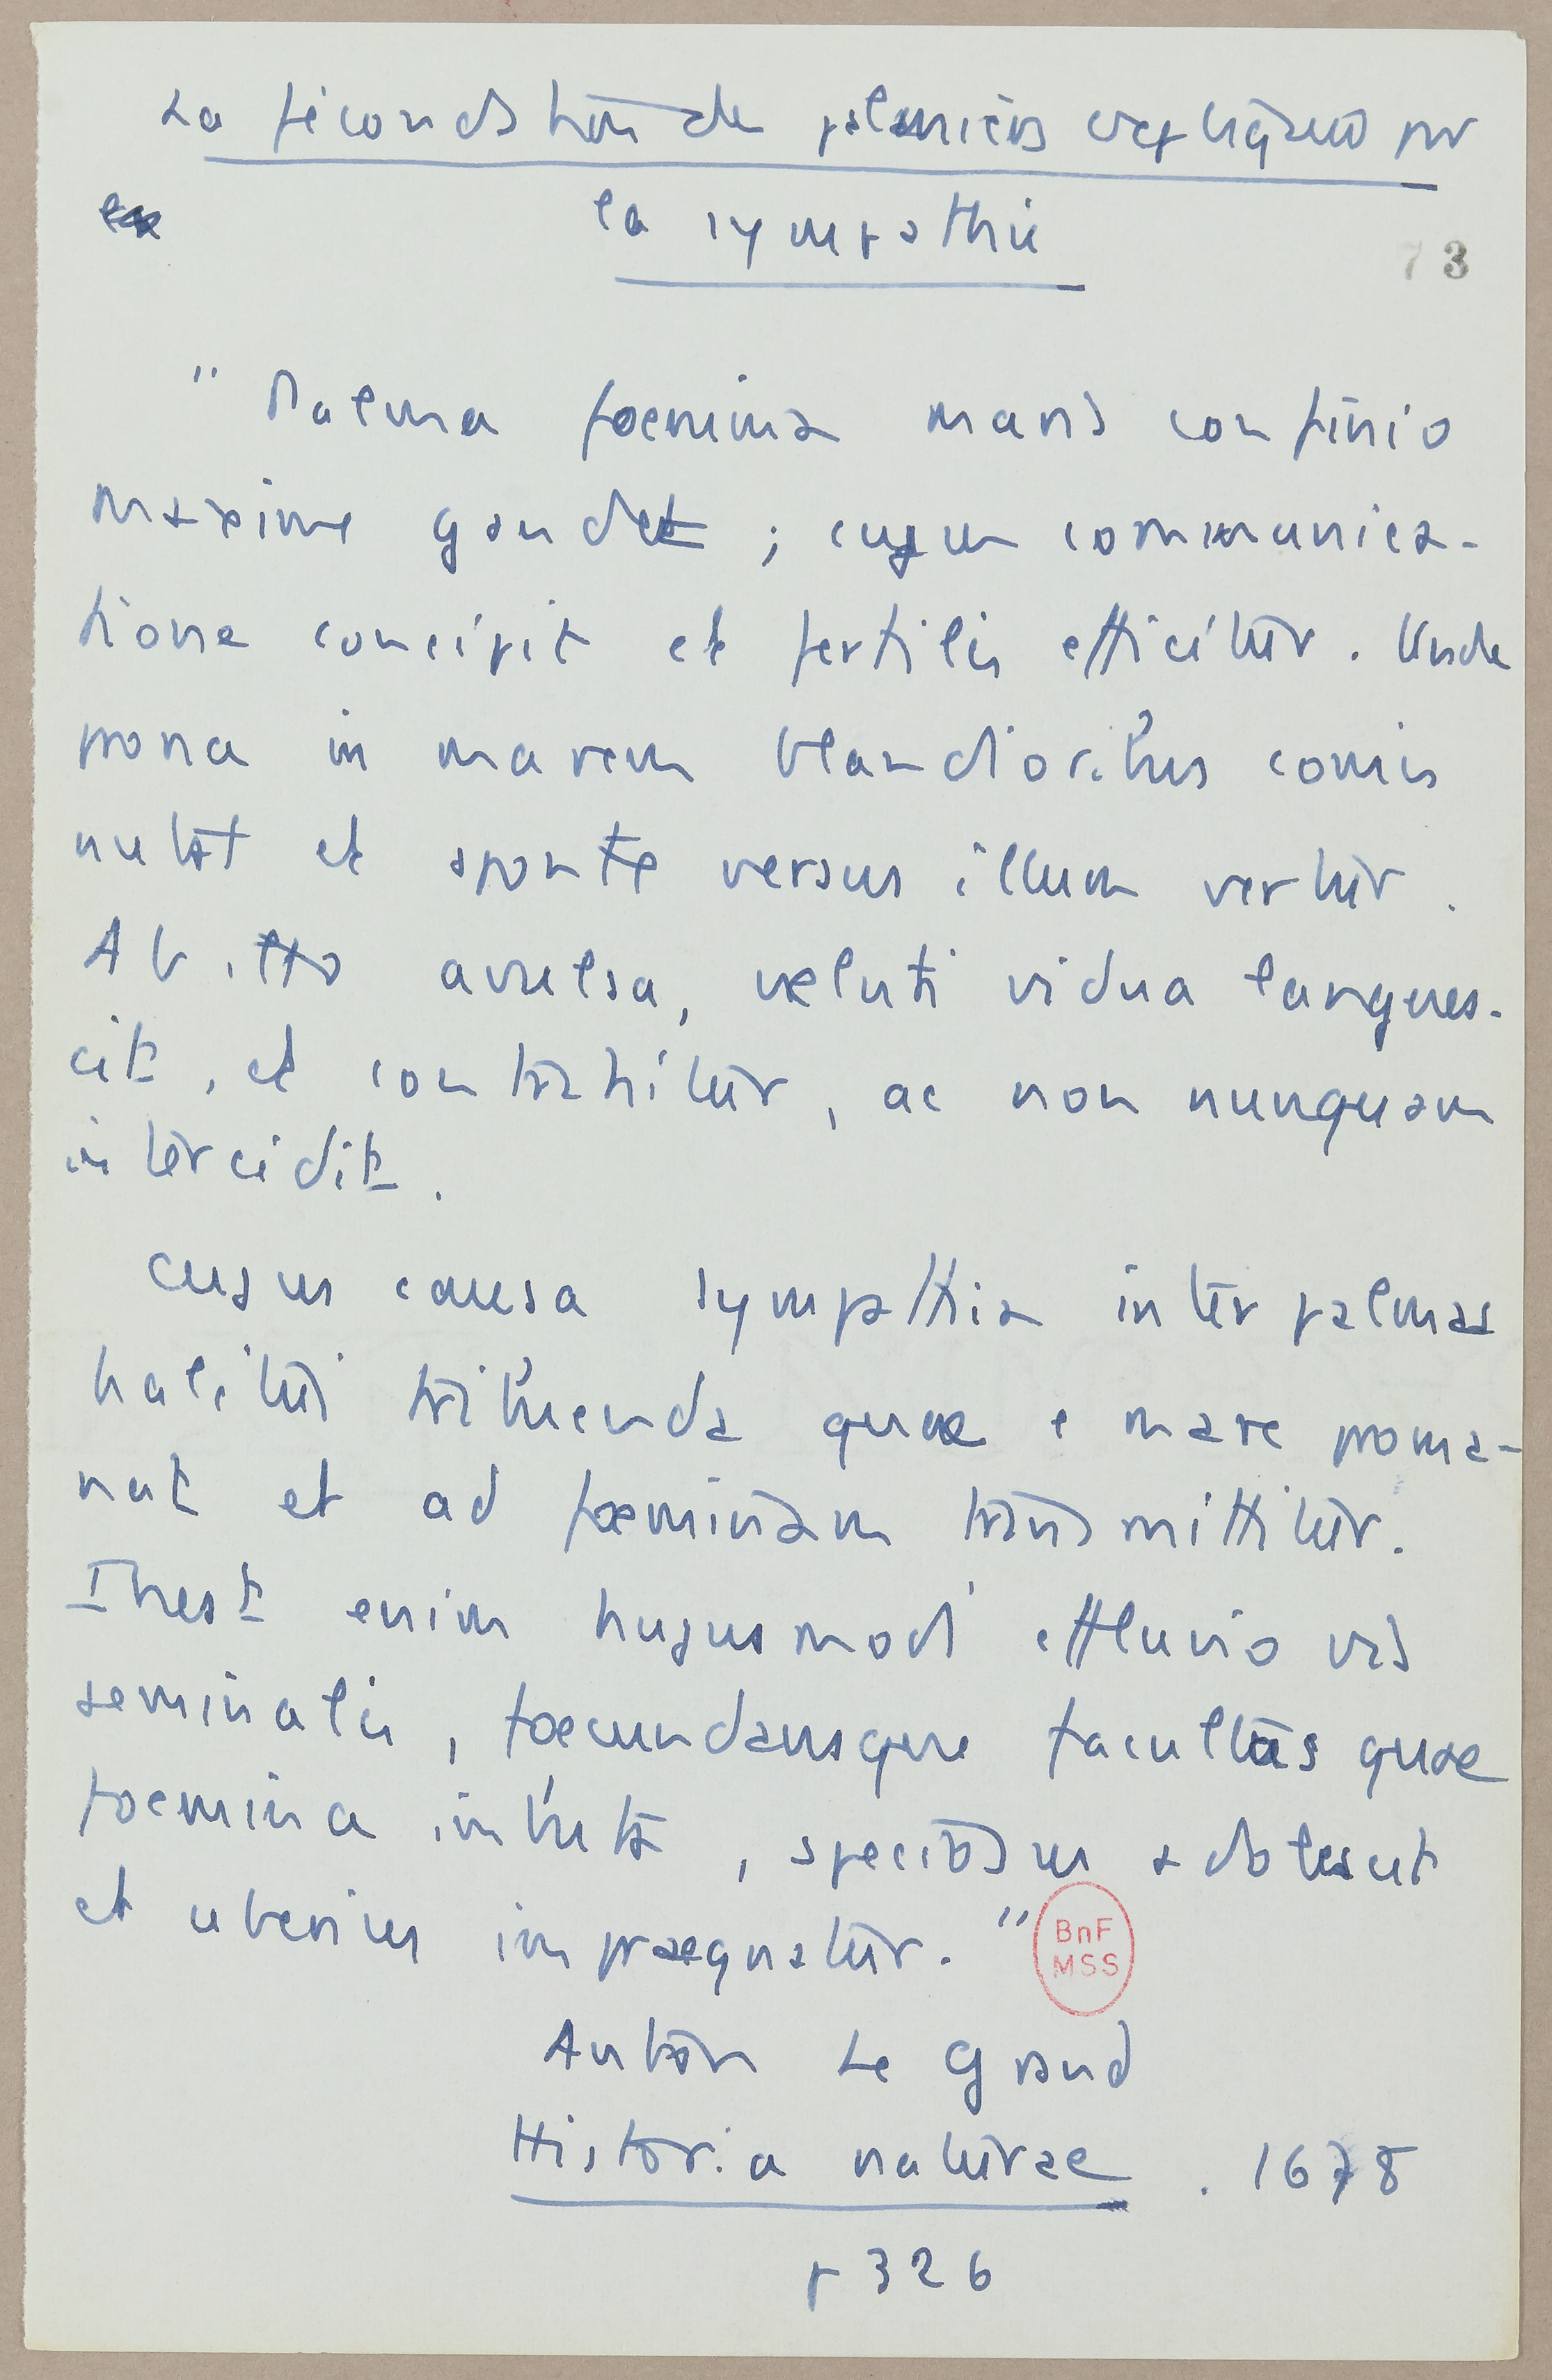 La fécondation des palmiers expliquée par
la sympathie
73
" Palma foemina maris confinio
maxime gaudet ; cujus communica-
tione concipit et fertilis efficitur. Unde
prona in marem blandioribus comis
nutat et sponte versus illum vertitur.
Ab illo avulsa, veluti vidua langues-
cit, et contrahitur, ac non nunquam
intercidit.
Cujus causa sympathia inter palmas
halitui tribuenda quae e mare proma-
nat et ad foeminam transmittitur.
Inest enim hujusmodi effluvio vis
seminalis, foecundansque facultas quae
foemina imbuta, speciosius adolescit
et uberius impraegnatur. "
BnF
MSS
Anton Le Grand
Historia naturae . 1678
p 326